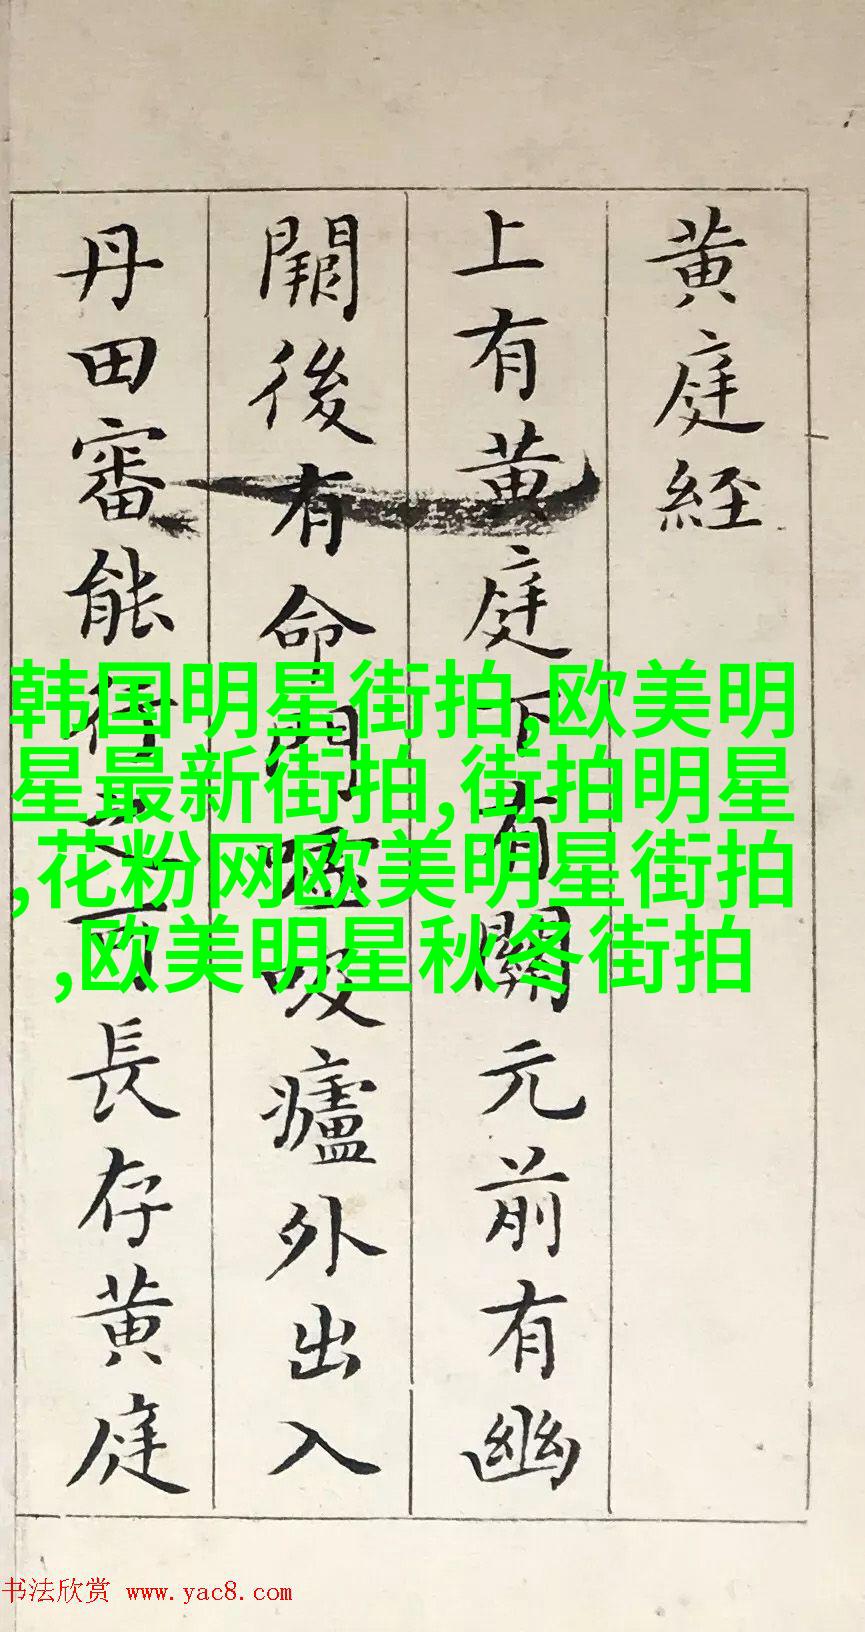 黄庭経
上有黄庭下有關元前有幽
闕後有命門噓吸廬外出入
丹田審能行之可長存黄庭
韩国明星街拍,欧美明
星最新街拍,街拍明星
,花粉网欧美明星街拍
,欧美明星秋冬街拍
书法欣赏 www.yac8.com